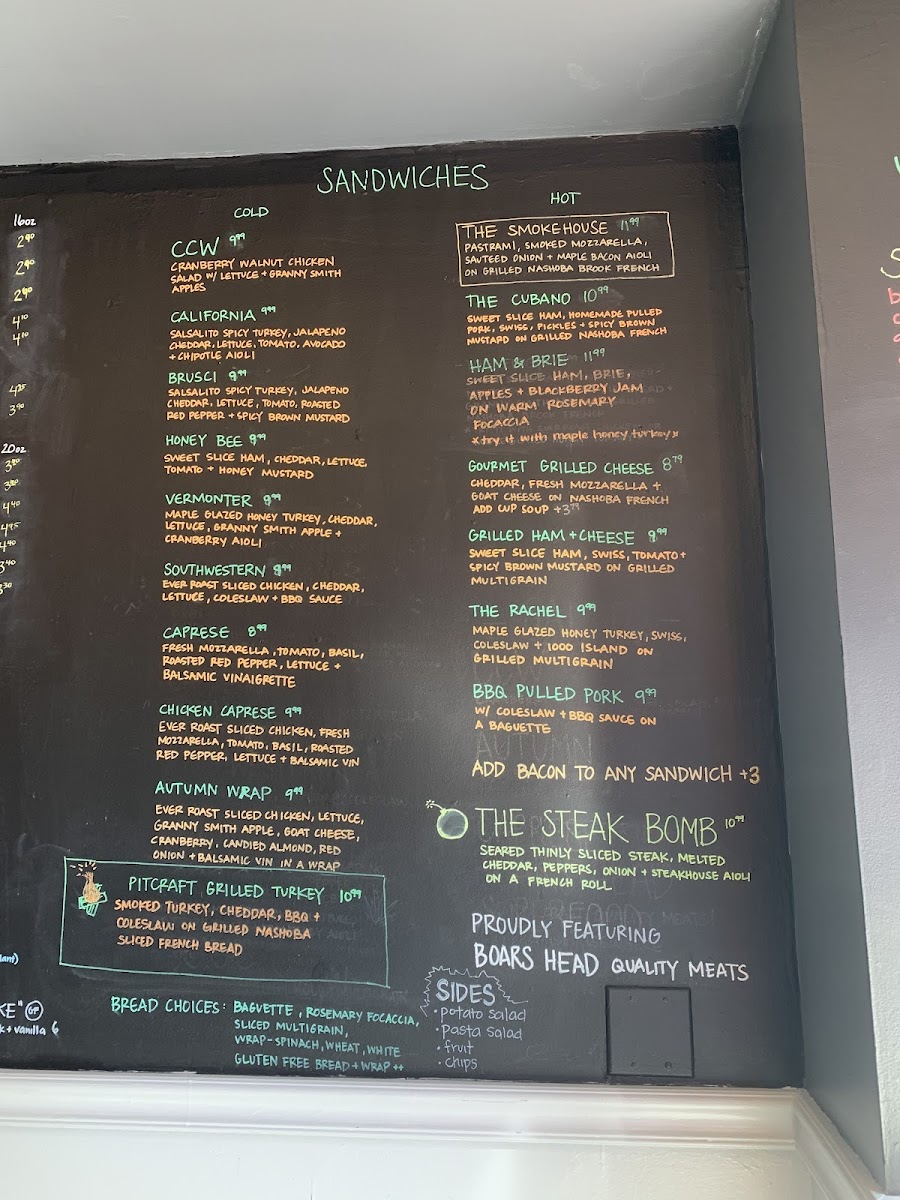 SANDWICHES
COLD
CCW 9.99
CRANBERRY WALNUT CHICKEN
SALAD W/ LETTUCE + GRANNY SMITH
APPLES
CALIFORNIA 9.99
SALSALITO SPICY TURKEY, JALAPENO
CHEDDAR, LETTUCE, TOMATO, AVOCADO
+ CHIPOTLE AIOLI
BRUSCI 9.99
SALSALITO SPICY TURKEY, JALAPENO
CHEDDAR, LETTUCE, TOMATO, ROASTED
RED PEPPER + SPICY BROWN MUSTARD
HONEY BEE
SWEET SLICE HAM, CHEDDAR, LETTUCE,
TOMATO + HONEY MUSTARD
VERMONTER 9.99
MAPLE GLAZED HONEY TURKEY, CHEDDAR,
LETTUCE, GRANNY SMITH APPLE +
CRANBERRY AIOLI
SOUTHWESTERN
EVER ROAST SLICED CHICKEN, CHEDDAR,
LETTUCE, COLESLAW + BBQ SAUCE
CAPRESE 8.99
FRESH MOZZARELLA, TOMATO, BASIL,
ROASTED RED PEPPER, LETTUCE +
BALSAMIC VINAIGRETTE
CHICKEN CAPRESE 9.99
EVER ROAST SLICED CHICKEN, FRESH
MOZZARELLA, TOMATO, BASIL, ROASTED
RED PEPPER, LETTUCE + BALSAMIC VIN
AUTUMN WRAP 9.99
EVER ROAST SLICED CHICKEN, LETTUCE,
GRANNY SMITH APPLE, GOAT CHEESE,
CRANBERRY, CANDIED ALMOND, RED
ONION + BALSAMIC VIN IN A WRAP
PITCRAFT GRILLED TURKEY 10.99
SMOKED TURKEY, CHEDDAR, BBQ +
COLESLAW ON GRILLED NASHOBA
SLICED FRENCH BREAD
BREAD CHOICES: BAGUETTE, ROSEMARY FOCACCIA,
SLICED MULTIGRAIN,
WRAP-SPINACH, WHEAT, WHITE
GLUTEN FREE BREAD + WRAP ++
HOT
THE SMOKEHOUSE 11.99
PASTRAMI, SMOKED MOZZARELLA,
SAUTEED ONION + MAPLE BACON AIOLI
ON GRILLED NASHOBA BROOK FRENCH
THE CUBANO 10.99
SWEET SLICE HAM, HOMEMADE PULLED
PORK, SWISS, PICKLES + SPICY BROWN
MUSTARD ON GRILLED NASHOBA FRENCH
HAM & BRIE 11.99
SWEET SLICE HAM, BRIE,
APPLES + BLACKBERRY JAM
ON WARM ROSEMARY
FOCACCIA
*try it with maple honey turkey*
GOURMET GRILLED CHEESE 8.79
CHEDDAR, FRESH MOZZARELLA +
GOAT CHEESE ON NASHOBA FRENCH
ADD CUP SOUP +3.79
GRILLED HAM + CHEESE
SWEET SLICE HAM, SWISS, TOMATO +
SPICY BROWN MUSTARD ON GRILLED
MULTIGRAIN
THE RACHEL 9.99
MAPLE GLAZED HONEY TURKEY, SWISS,
COLESLAW + 1000 ISLAND ON
GRILLED MULTIGRAIN
BBQ PULLED PORK 9.99
W/ COLESLAW + BBQ SAUCE ON
A BAGUETTE
ADD BACON TO ANY SANDWICH +3
THE STEAK BOMB 10.99
SEARED THINLY SLICED STEAK, MELTED
CHEDDAR, PEPPERS, ONION + STEAKHOUSE AIOLI
ON A FRENCH ROLL
PROUDLY FEATURING
BOARS HEAD QUALITY MEATS
SIDES
• potato salad
• pasta salad
• fruit
• chips
16oz
20oz
+ vanilla